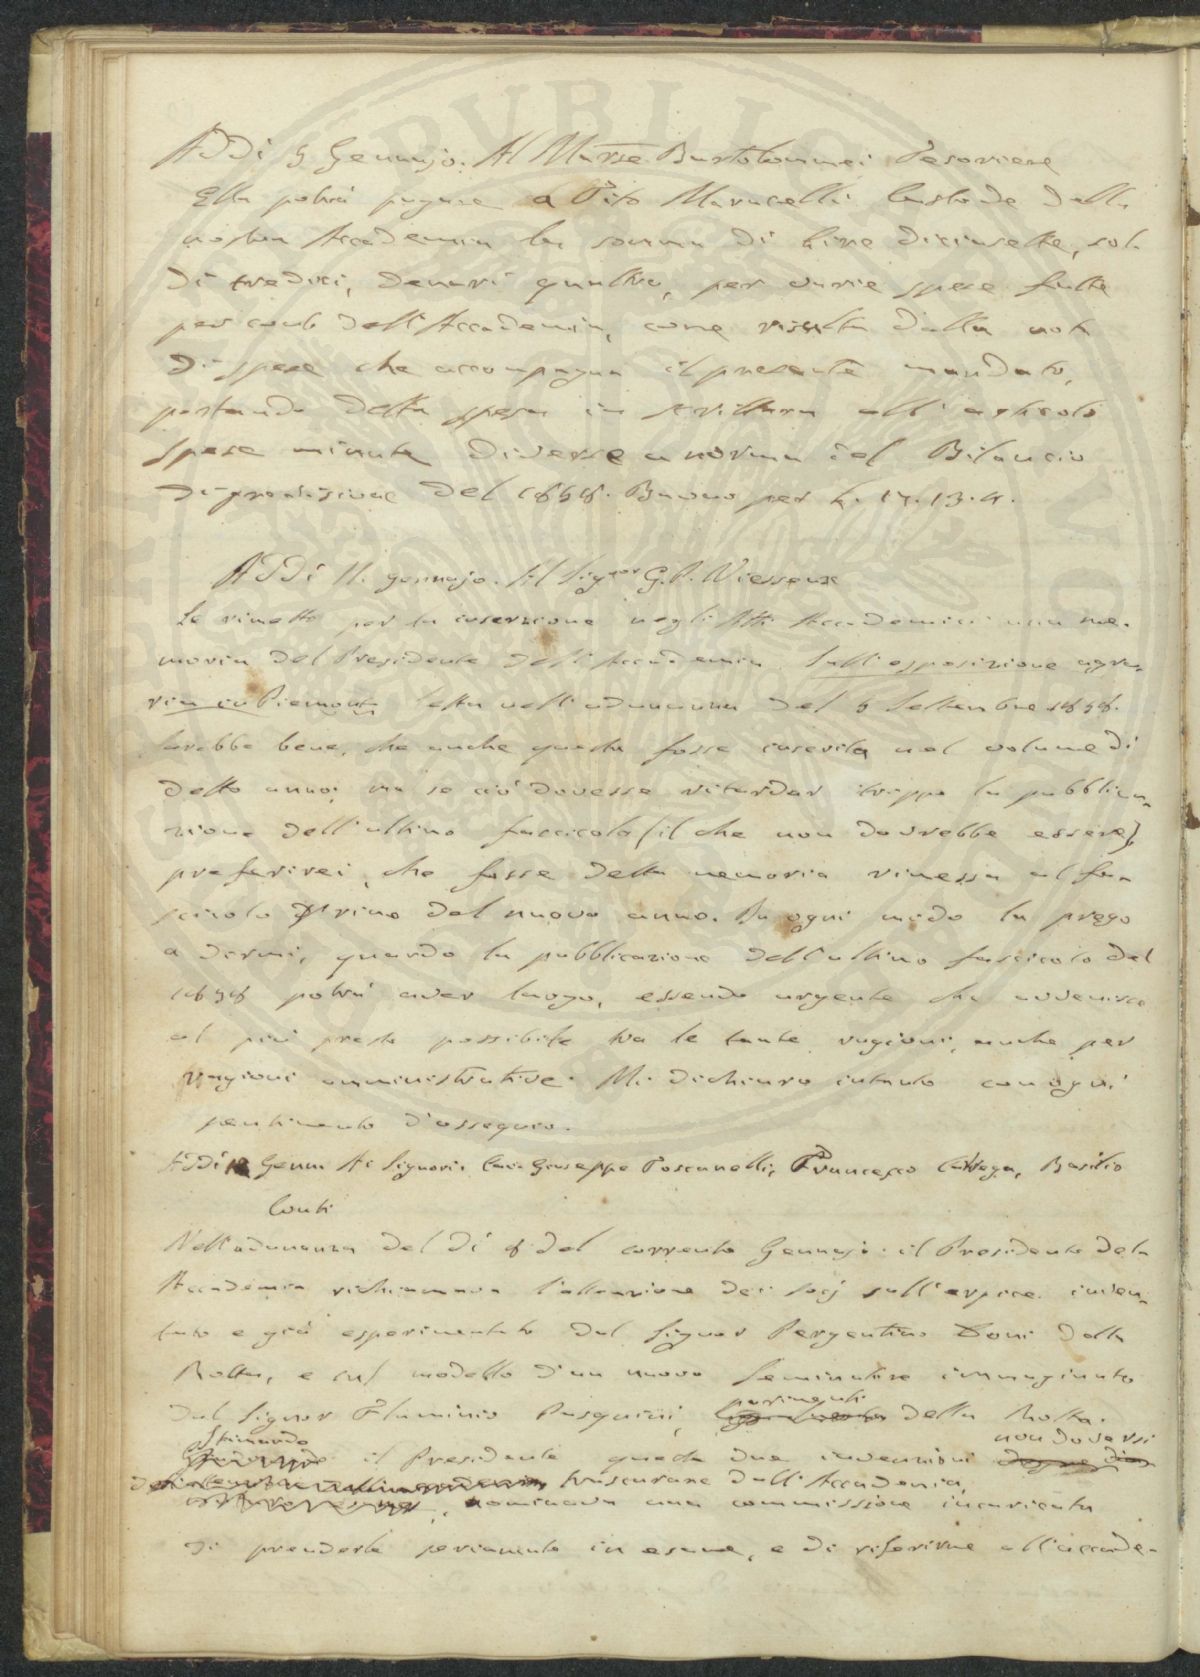 Addì 5 Gennajo. Al Marse Bartolommei Tesoriere
Ella potrà pagare a Tito Marucelli Custode della
nostra Accademia la somma di Lire diciasette, sol-
di tredici, denari quattro, per varie spese fatte
per conto dell'Accademia, come risulta dalla nota
di spese che accompagna il presente mandato,
portando detta spesa in scrittura all'articolo
spese minute diverse a norma del Bilancio
di previsione del 1858. Buono per L. 17.13.4.
Addì 11. gennajo. Al Sigr G. P. Viesseux
Le rimetto per la inserzione negli Atti Accademici una me-
moria del Presidente dell'Accademia Sull'esposizione agra-
ria in Piemonte letta nell'adunanza del 5 Settembre 1858.
Sarebbe bene, che anche questa fosse inserita nel volume di
detto anno; ma se ciò dovesse ritardar troppo la pubblica-
zione dell'ultimo fascicolo (il che non dovrebbe essere),
preferirei, che fosse detta memoria rimessa al fa-
scicolo primo del nuovo anno. In ogni modo la prego
a dirmi, quando la pubblicazione dell'ultimo fascicolo del
1858 potrà aver luogo, essendo urgente che avvenisse
al più presto possibile tra le tante ragioni, anche per
ragioni amministrative. Mi dichiaro intanto con ogni
sentimento d'ossequio.
Addì 12 Genn Ai Signori Cav. Giuseppe Toscanelli, Francesco Carega, Basilio
Conti
Nell'adunanza del dì 8 del corrente Gennajo il Presidente della
Accademia richiamava l'attenzione dei Socj sull'erpice inven-
tato e già esperimentato dal Signor Pergentino Doni della
Rotta, e sul modello d'un nuovo Seminatore immaginato
dal Signor Flaminio Pasquini, parimenti della Rotta.
Stimando il Presidente queste due invenzioni non doversi
trascurare dall'Accademia,
nominava una commissione incaricata
di prenderle seriamente in esame, e di riferirne all'accade-